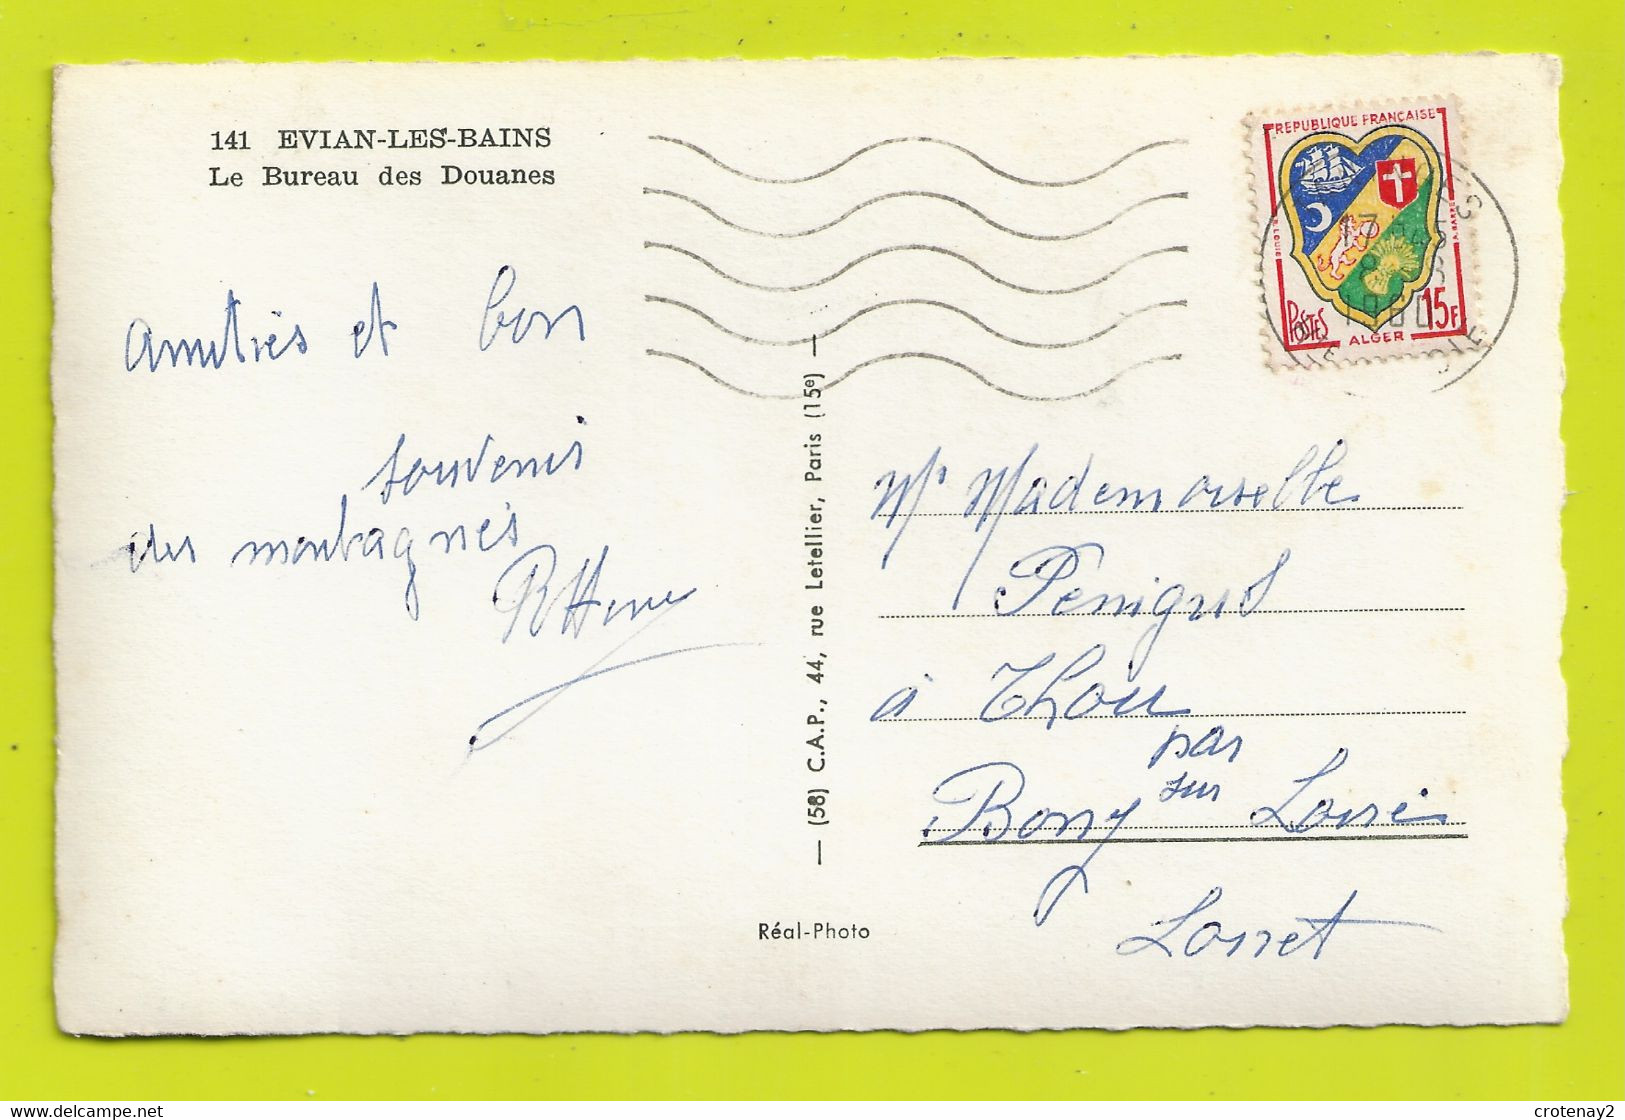 141 EVIAN-LES-BAINS
Le Bureau des Douanes
Amitiés et bon
souvenir
des montagnes
— (58) C.A.P., 44, rue Letellier, Paris (15e) —
Réal-Photo
REPUBLIQUE FRANÇAISE
POSTES
15F
ALGER
17
8
1960
Mademoiselle
Penigus
à Thou
par
Bony sur Loire
Loiret
crotenay2